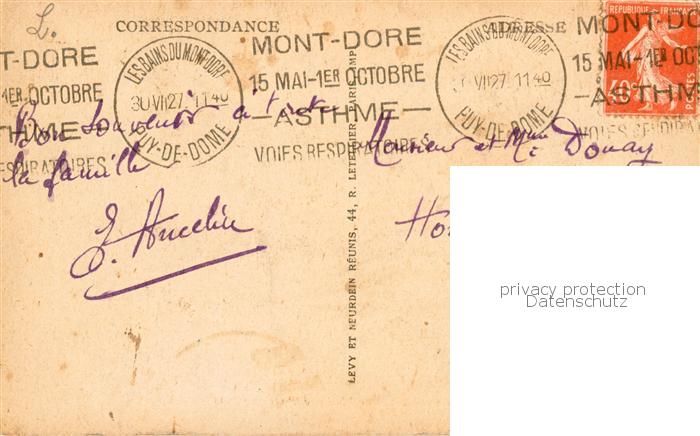 L.
CORRESPONDANCE
ADRESSE
T-DORE
1ER OCTOBRE
THME
RESPIRATOIRES
LES BAINS DU MONT-DORE
30 VII 27. 11 40
PUY-DE-DOME
MONT-DORE
15 MAI-1ER OCTOBRE
ASTHME
VOIES RESPIRATOIRES
LES BAINS DU MONT-DORE
VII 27. 11 40
PUY-DE-DOME
MONT-DO
15 MAI-1ER O
ASTHM
VOIES RESPIR
REPUBLIQUE FRANÇAISE
Bon Souvenir à toute
la famille
E. Ancelin
LEVY ET NEURDEIN RÉUNIS, 44, R. LETELLIER, PARIS IMP.
Monsieur et Mme Douay
Ho
privacy protection
Datenschutz